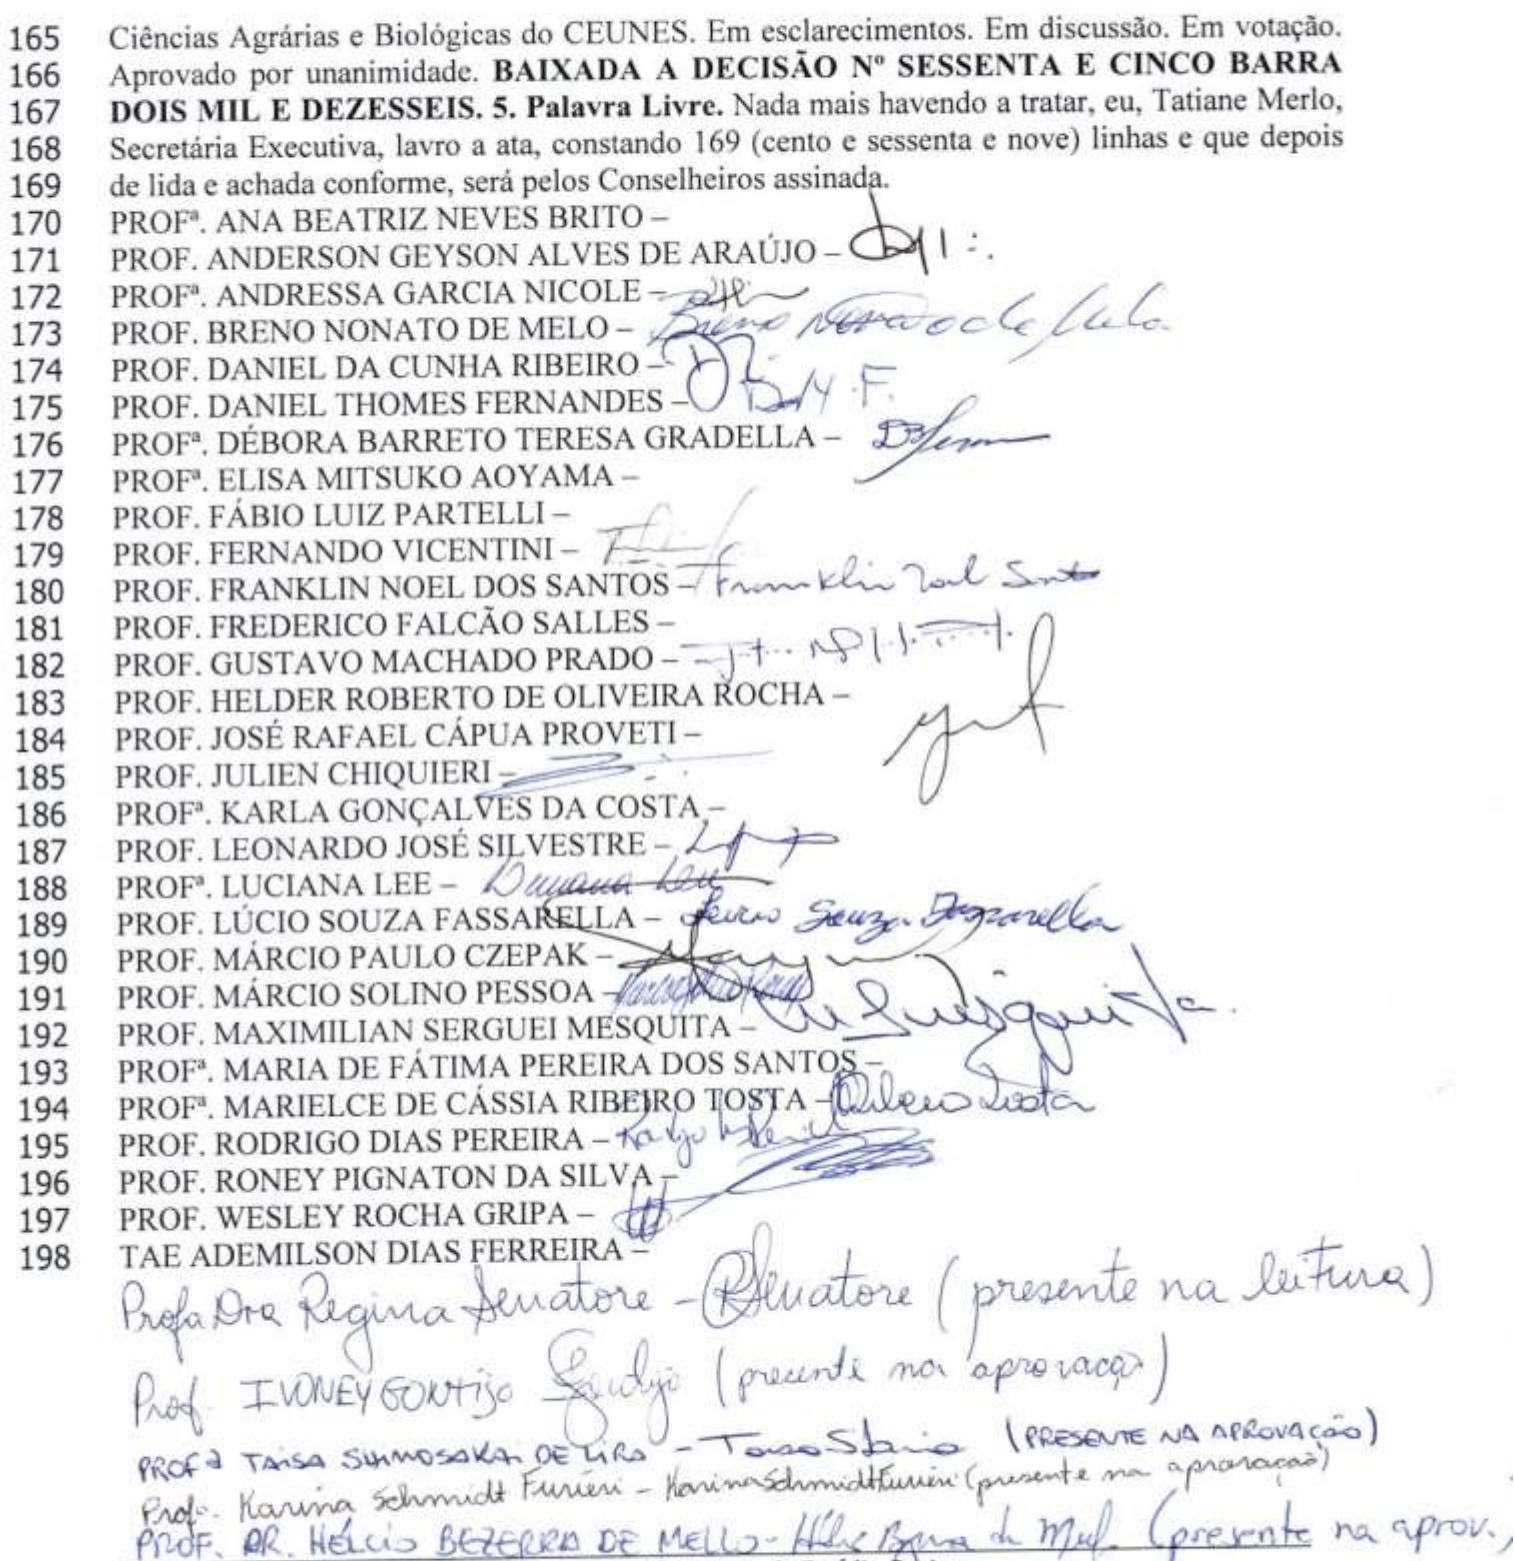 165 Ciências Agrárias e Biológicas do CEUNES. Em esclarecimentos. Em discussão. Em votação.
166 Aprovado por unanimidade. BAIXADA A DECISÃO Nº SESSENTA E CINCO BARRA
167 DOIS MIL E DEZESSEIS. 5. Palavra Livre. Nada mais havendo a tratar, eu, Tatiane Merlo,
168 Secretária Executiva, lavro a ata, constando 169 (cento e sessenta e nove) linhas e que depois
169 de lida e achada conforme, será pelos Conselheiros assinada.
170 PROFª. ANA BEATRIZ NEVES BRITO –
171 PROF. ANDERSON GEYSON ALVES DE ARAÚJO –
172 PROFª. ANDRESSA GARCIA NICOLE –
173 PROF. BRENO NONATO DE MELO – Breno Nonato de Melo
174 PROF. DANIEL DA CUNHA RIBEIRO –
175 PROF. DANIEL THOMES FERNANDES –
176 PROFª. DÉBORA BARRETO TERESA GRADELLA –
177 PROFª. ELISA MITSUKO AOYAMA –
178 PROF. FÁBIO LUIZ PARTELLI –
179 PROF. FERNANDO VICENTINI –
180 PROF. FRANKLIN NOEL DOS SANTOS – Franklin Noel Santos
181 PROF. FREDERICO FALCÃO SALLES –
182 PROF. GUSTAVO MACHADO PRADO –
183 PROF. HELDER ROBERTO DE OLIVEIRA ROCHA –
184 PROF. JOSÉ RAFAEL CÁPUA PROVETI –
185 PROF. JULIEN CHIQUIERI –
186 PROFª. KARLA GONÇALVES DA COSTA –
187 PROF. LEONARDO JOSÉ SILVESTRE –
188 PROFª. LUCIANA LEE – Luciana Lee
189 PROF. LÚCIO SOUZA FASSARELLA – Lúcio Souza Fassarella
190 PROF. MÁRCIO PAULO CZEPAK –
191 PROF. MÁRCIO SOLINO PESSOA –
192 PROF. MAXIMILIAN SERGUEI MESQUITA – Mesquita
193 PROFª. MARIA DE FÁTIMA PEREIRA DOS SANTOS –
194 PROFª. MARIELCE DE CÁSSIA RIBEIRO TOSTA – Ribeiro Tosta
195 PROF. RODRIGO DIAS PEREIRA –
196 PROF. RONEY PIGNATON DA SILVA –
197 PROF. WESLEY ROCHA GRIPA –
198 TAE ADEMILSON DIAS FERREIRA –
Profa Dra Regina Senatore – RSenatore (presente na leitura)
Prof. IVONEY GONTIJO Gontijo (presente na aprovação)
PROFª TAISA SHIMOSAKAI DE LIRA – (PRESENTE NA APROVAÇÃO)
Profª. Karina Schmidt Furieri – Karina Schmidt Furieri (presente na aprovação)
PROF. DR. HÉLCIO BEZERRA DE MELLO – (presente na aprov.)